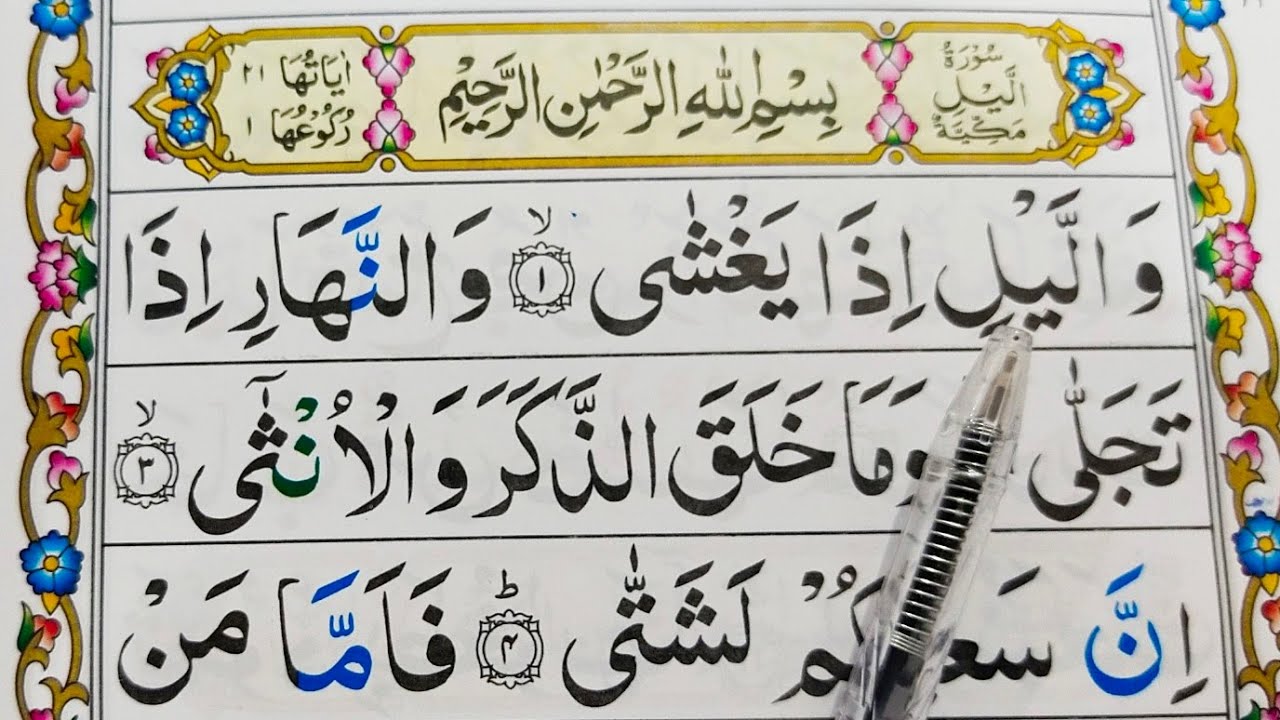 سُوْرَةُ الَّيْلِ مَكِّيَّةٌ
بِسْمِ اللّٰهِ الرَّحْمٰنِ الرَّحِيْمِ
اٰيَاتُهَا ٢١
رُكُوْعُهَا ١
وَالَّيْلِ اِذَا يَغْشٰى ۙ‏ ١ وَالنَّهَارِ اِذَا
تَجَلّٰى وَمَا خَلَقَ الذَّكَرَ وَالْاُنْثٰٓى ۙ‏ ٣
اِنَّ سَعْيَكُمْ لَشَتّٰى ؕ‏ ۴ فَاَمَّا مَنْ